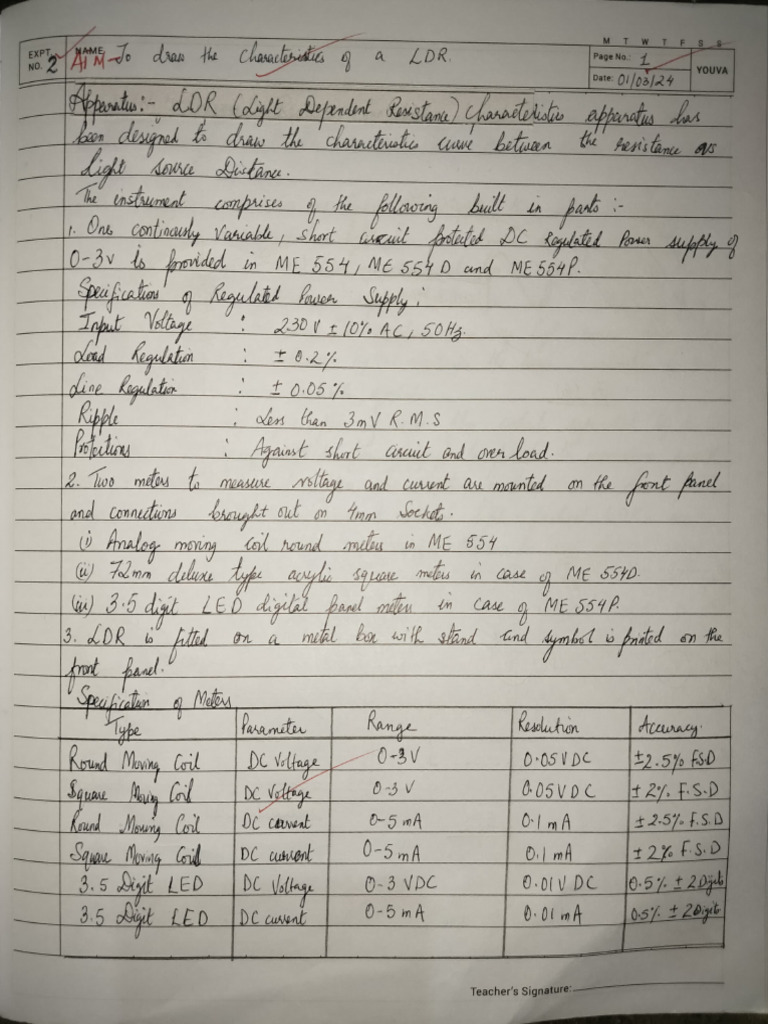 M T W T F S S
EXPT. NO. 2 NAME AIM - To draw the Characteristics of a LDR. Page No.: 1 YOUVA
Date: 01/03/24
Apparatus:- LDR (Light Dependent Resistance) Characteristics apparatus has
been designed to draw the characteristics curve between the resistance vs
light source Distance.
The instrument comprises of the following built in parts :-
1. One continously Variable, short circuit protected DC Regulated Power supply of
0-3v is provided in ME 554, ME 554 D and ME 554P.
Specifications of Regulated Power Supply :
Input Voltage : 230 V ± 10% AC, 50Hz.
Load Regulation : ± 0.2%
Line Regulation : ± 0.05%
Ripple : Less than 3mV R.M.S
Protections : Against short circuit and over load.
2. Two meters to measure voltage and current are mounted on the front panel
and connections brought out on 4mm Sockets.
(i) Analog moving coil round meters in ME 554
(ii) 72mm deluxe type acrylic square meters in case of ME 554D.
(iii) 3.5 digit LED digital panel meters in case of ME 554P.
3. LDR is fitted on a metal box with stand and symbol is printed on the
front panel.
Specification of Meters
Type Parameter Range Resolution Accuracy.
Round Moving Coil DC Voltage 0-3V 0.05V DC ±2.5% F.S.D
Square Moving Coil DC Voltage 0-3V 0.05V DC ± 2% F.S.D
Round Moving Coil DC current 0-5 mA 0.1 mA ± 2.5% F.S.D
Square Moving Coil DC current 0-5 mA 0.1 mA ± 2% F.S.D
3.5 Digit LED DC Voltage 0-3 VDC 0.01V DC 0.5% ± 2 Digits
3.5 Digit LED DC current 0-5 mA 0.01 mA 0.5% ± 2 Digits
Teacher's Signature: